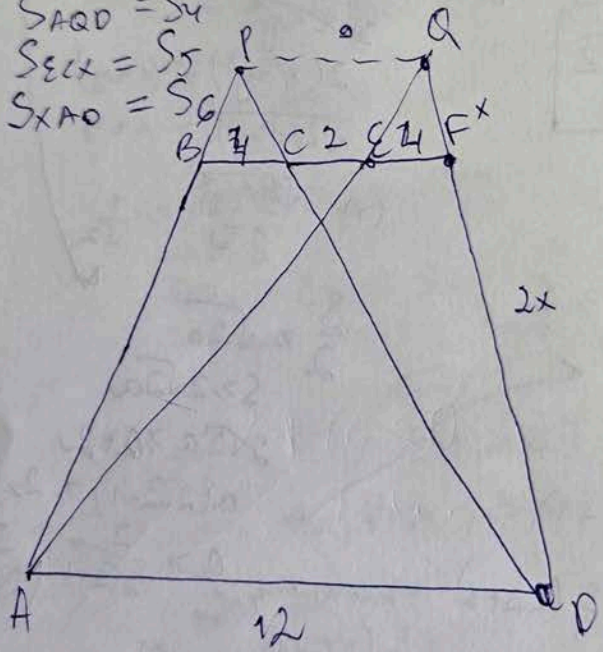 S_AQD = S4
S_ECX = S5
S_XAD = S6
P Q
B 4 C 2 E 4 F x
2x
A 12 D